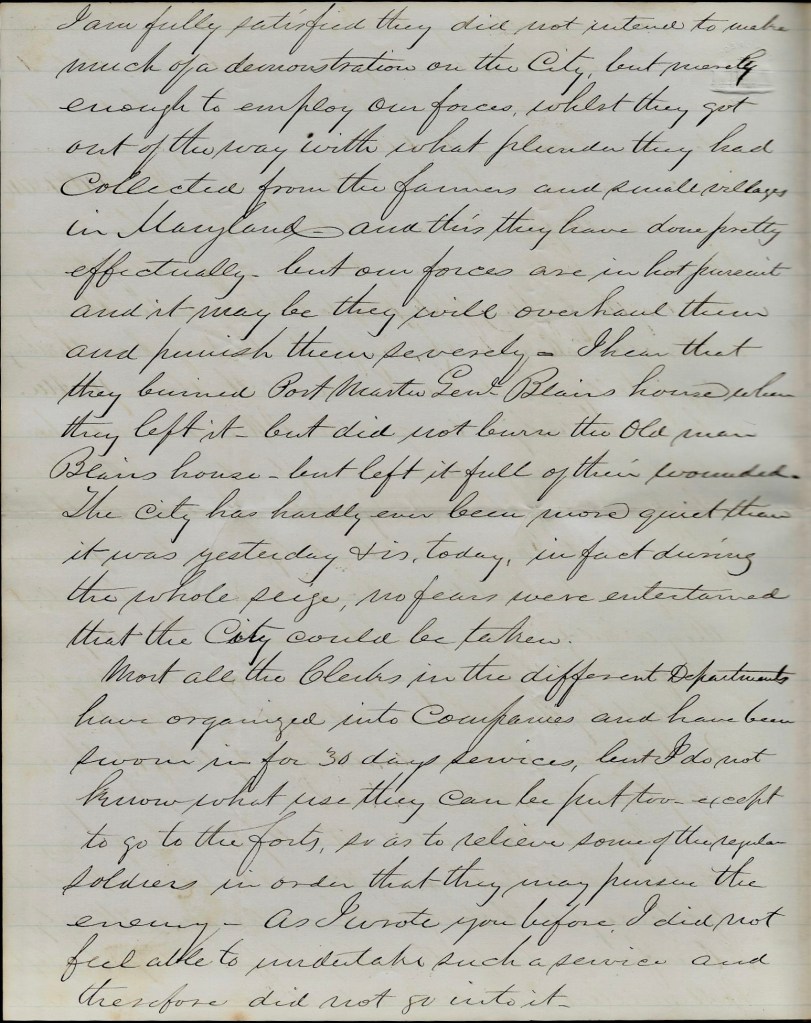 I am fully satisfied they did not intend to make
much of a demonstration on the City, but merely
enough to employ our forces, whilst they got
out of the way with what plunder they had
Collected from the farmers and small villages
in Maryland – and this they have done pretty
effectually – but our forces are in hot pursuit
and it may be they will overhaul them
and punish them severely – I hear that
they burned Post Master Genl Blairs house when
they left it – but did not burn the Old man
Blairs house – but left it full of their wounded –
The City has hardly ever been more quiet than
it was yesterday & is, today, in fact during
the whole seige, no fears were entertained
that the City could be taken.
Most all the Clerks in the different Departments
have organized into Companies and have been
sworn in for 30 days services, but I do not
know what use they can be put too – except
to go to the forts, so as to relieve some of the regular
soldiers in order that they may pursue the
enemy – As I wrote you before, I did not
feel able to undertake such a service and
therefore did not go into it –